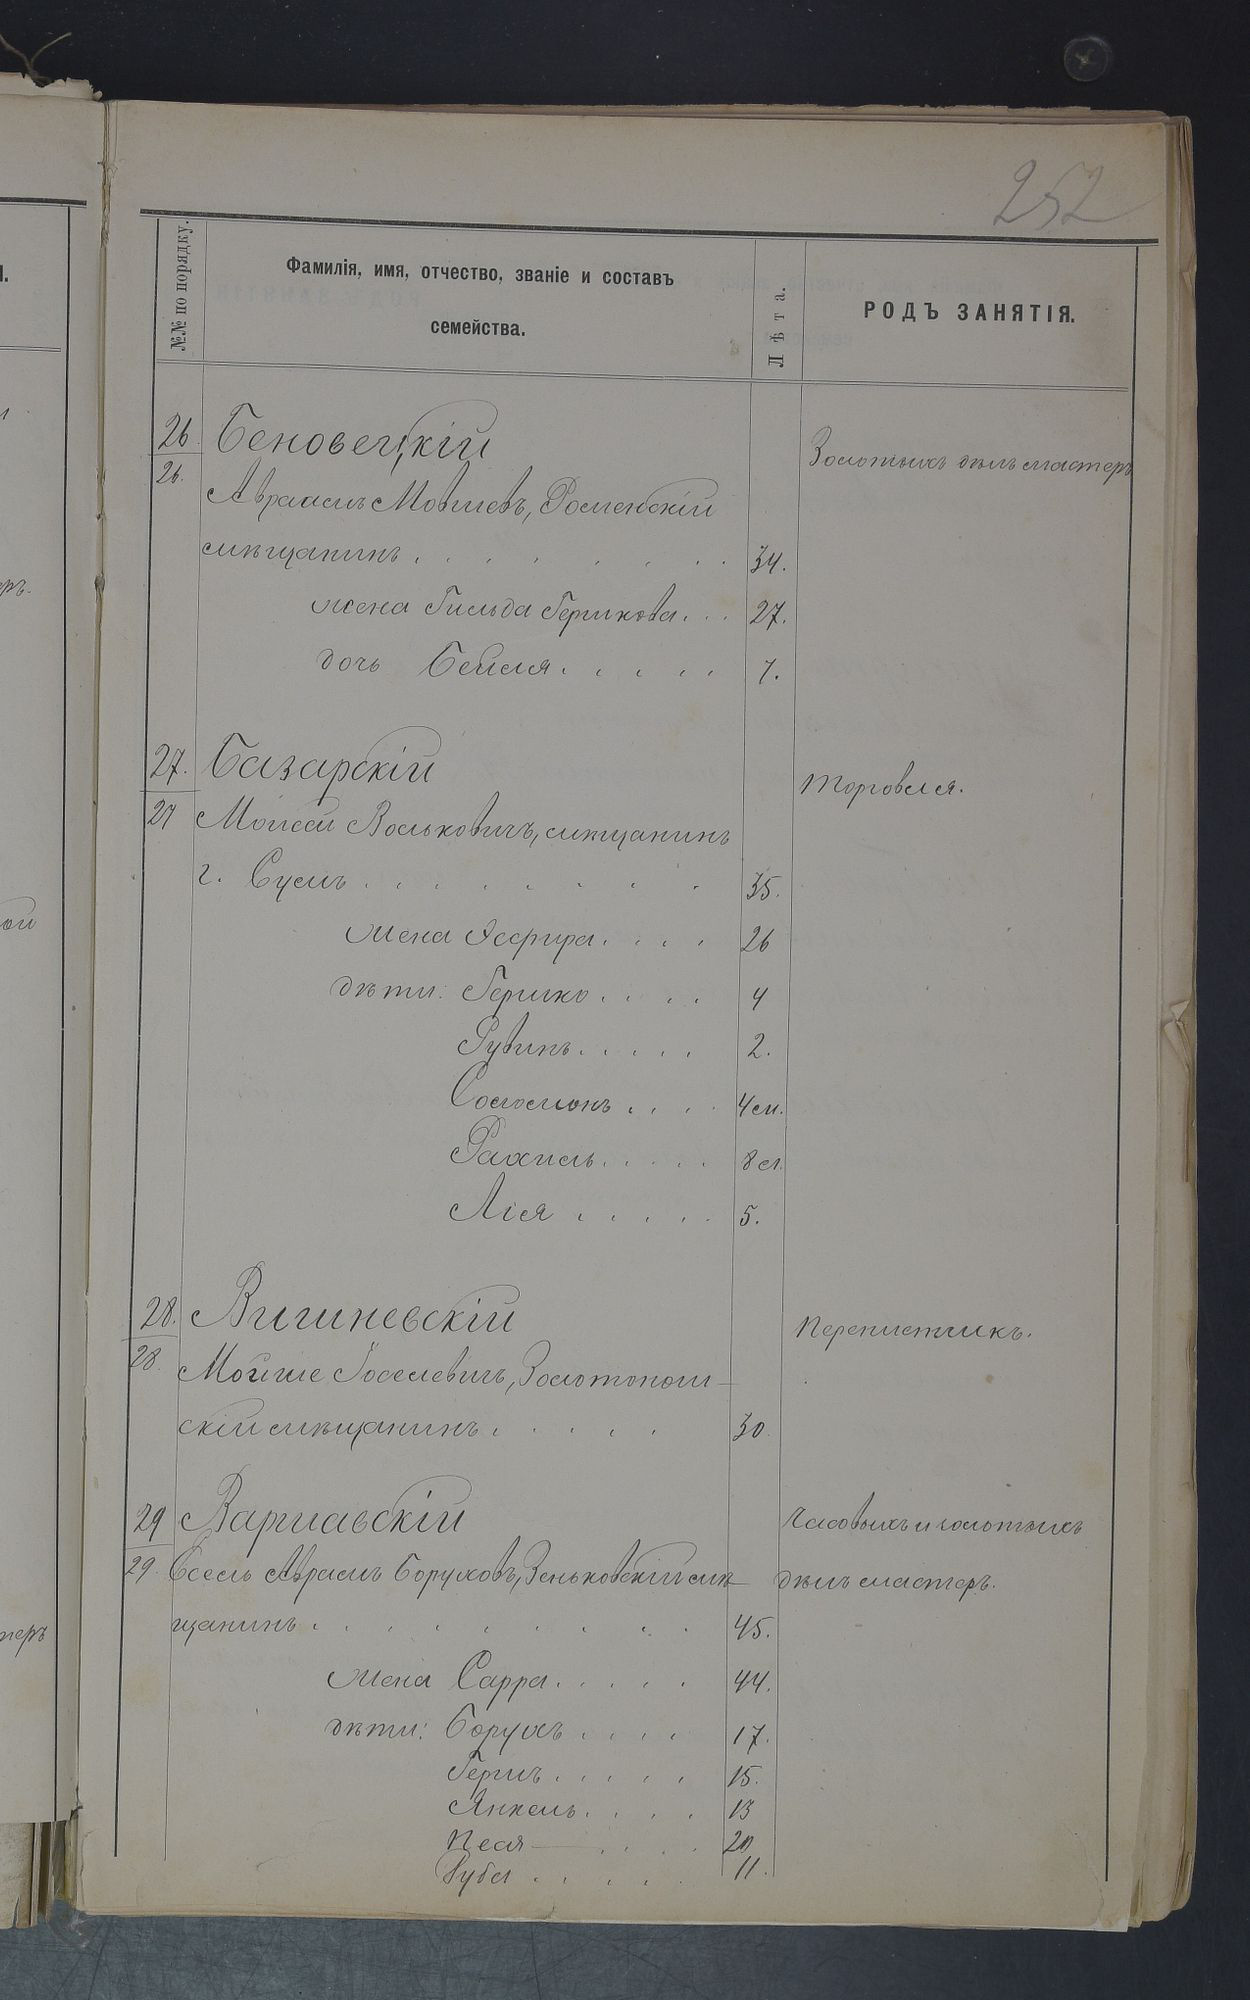 252
№№ по порядку.
Фамилія, имя, отчество, званіе и составъ
семейства.
Лѣта.
РОДЪ ЗАНЯТІЯ.
26. Беновецкій Золотыхъ дѣлъ мастеръ
26.
Авраамъ Мовшевъ, Роменскій
мѣщанинъ . . . . . . . 34.
жена Гильда Гершкова . . . 27.
дочь Бейля . . . . . 7.
27. Базарскій Торговля.
27 Моисей Вольковичъ, мѣщанинъ
г. Сумъ . . . . . . . 35.
жена Эсфира . . . . 26
дѣти: Гершко . . . . 4
Рувинъ . . . . . 2.
Соломонъ . . . . 4 м.
Рахиль . . . . . 8 л.
Лія . . . . . 5.
28. Вишневскій Переплетчикъ.
28. Мойше Іоселевичъ, Золотонош-
скій мѣщанинъ . . . . . 30.
29 Варшавскій Часовыхъ и золотыхъ
29. Есель Абрамъ Боруховъ, Зеньковскій мѣ- дѣлъ мастеръ.
щанинъ . . . . . . . . 45.
жена Сарра . . . . . 44.
дѣти: Борухъ . . . . 17.
Гершъ . . . . . 15.
Янкель . . . . 13
Песя . . . . 20
11.
ой